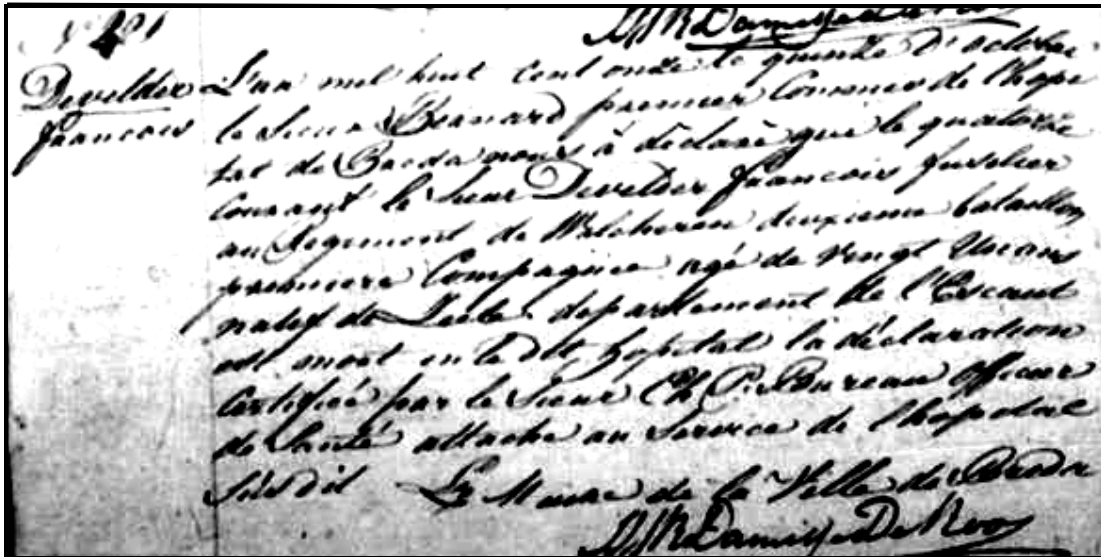 N° 281
Develder
francois
L'an mil huit cent onze le quinze d'octobre
le Sieur Bernard premier Commis de l'hopi
tal de Breda nous à déclaré que le quatorze
Courant le Sieur Develder francois fusilier
au Regiment de Walcheren deuxieme bataillon
premiere Compagnie agé de vingt Un ans
natif de departement de l'Escaut
est mort en le dit hopital la déclaration
Certifiée par le Sieur Ch P. Officier
de Santé attache au Service de l'hopital
Susdit Le Maire de la Ville de Breda